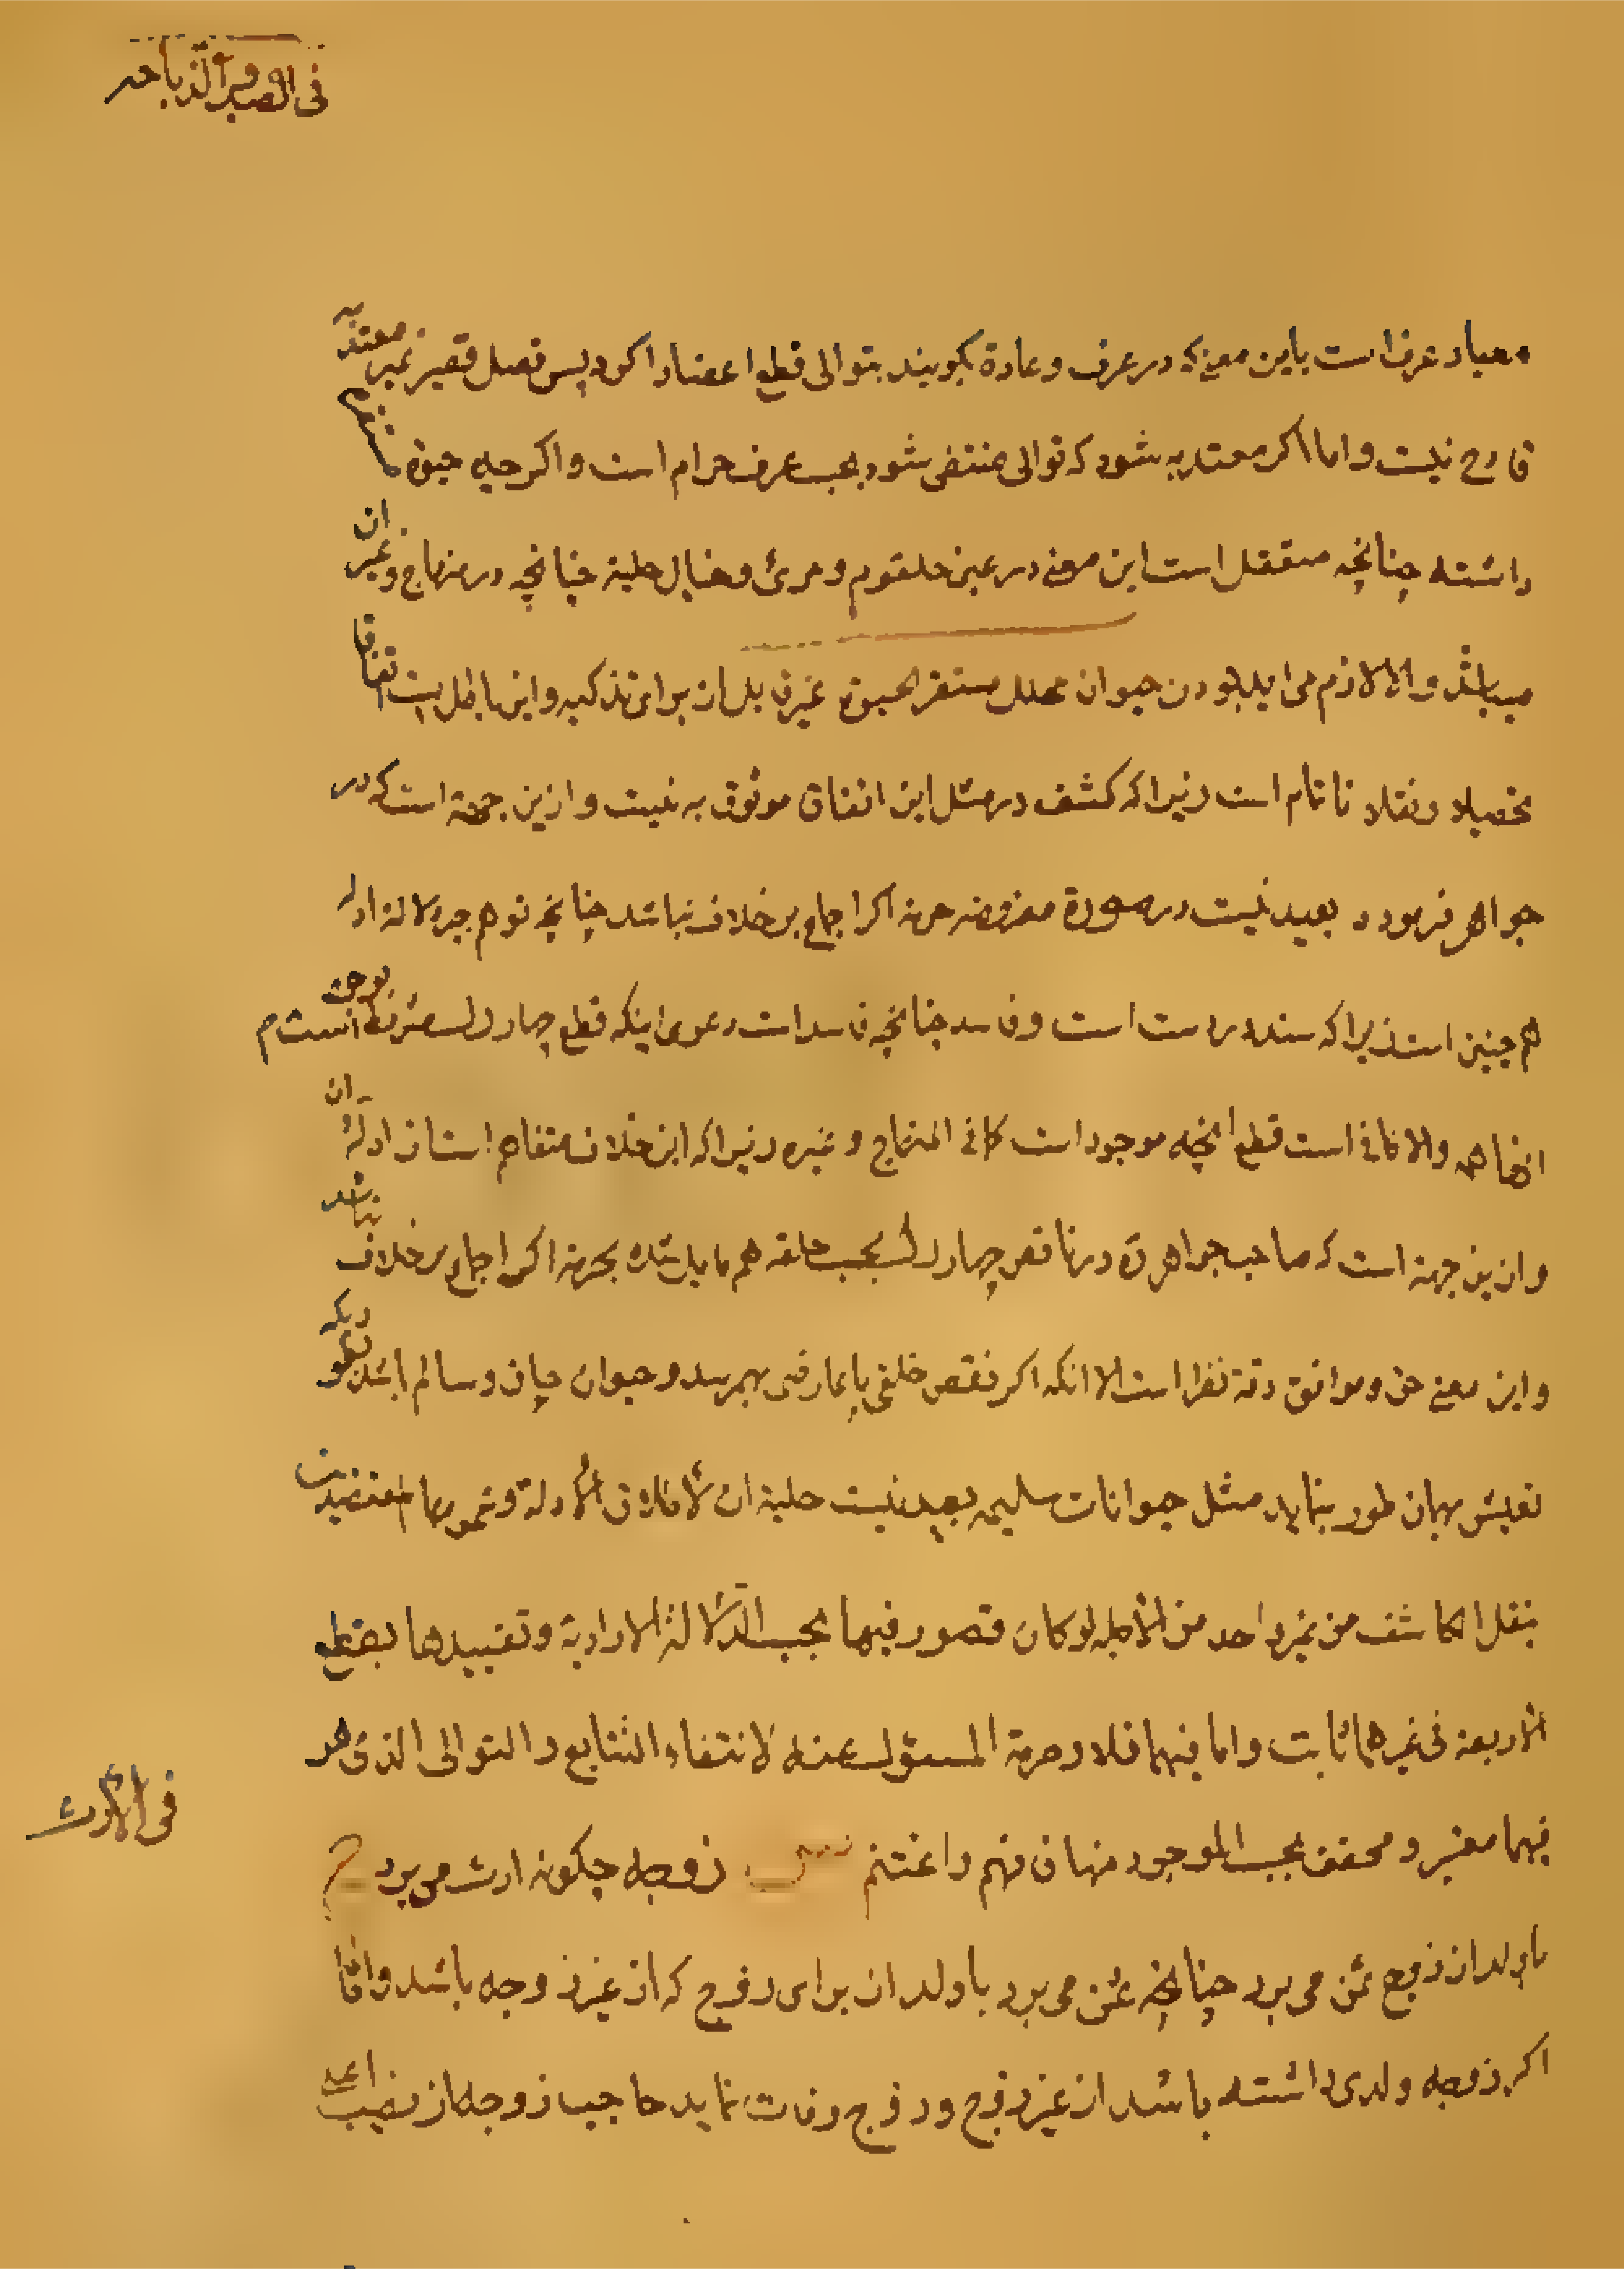 فی الصید و الذباحه
معیار عرف است باین معنی که در عرف و عادة بکویند بتوالی قطع اعضا را کرد پس فصل قصیر غیر معتد به
قادح نیست و اما اکر معتد به شود که توالی منتفی شود بحسب عرف حرام است و اکر چه حیوة مستقره
داشته چنانچه متعقل است این معنی در عین حلقوم و مرئ و خیال حلیة چنانچه در منهاج و غیر ان
میباشد و الا لازم می اید بودن حیوان محلل مستقر الحیوة غیر قابل از برای تذکیه و این باطل است اتفاقا
تحصیلا و نقلا ناتمام است زیرا که کشف در مثل این اتفاق موثوق به نیست و ازین جهة است که در
جواهر فرموده بعید نیست در صورة مفروضه حرمة اکر اجماع بر خلاف نباشد چنانچه توهم دلالة ادله
هم چنین است زیرا که سند درست است و فاسد چنانچه فاسد است دعوی اینکه قطع چهار شرط است
انها همه و الا کافی است قطع انچه موجود است کما فی المنهاج و غیره زیرا که این خلاف متفاهم است از ادله ان
و ازین جهة است که صاحب جواهر ره در ناقص چهار بحسب خلقه هم مایل شده بحرمة اکر اجماع بر خلاف نباشد
و این معنی حق و موافق دقة نظر است الا انکه اکر نقص خلقی یا عارضی بهم رسد و حیوان چاق و سالم باشد بطوریکه
تعیش بهمان طور بنماید مثل حیوانات سلیمه بعید نیست حلیة ان لاطلاق الادلة و عمومها المعتضدین
بنقل الکاشف من غیر واحد من الاجله لو کان قصور فیها بحسب الدلالة الارادیة و تقییدها بقطع
الاربعة فی غیرهما ثابت و اما فیهما فلا و حرمة المسؤل عنه لانتفاء التتابع و التوالی الذی هو
فیهما معتبر و محقق بحسب الموجود منها فافهم و اغتنم س زوجه چکونه ارث می برد ج
فی الارث
با ولد از زوج ثمن می برد چنانچه ثمن می برد با ولد از برای زوج که از غیر زوجه باشد و اما
اکر زوجه ولدی داشته باشد از غیر زوج و زوج وفات نماید حاجب زوجه از نصیب اعلی